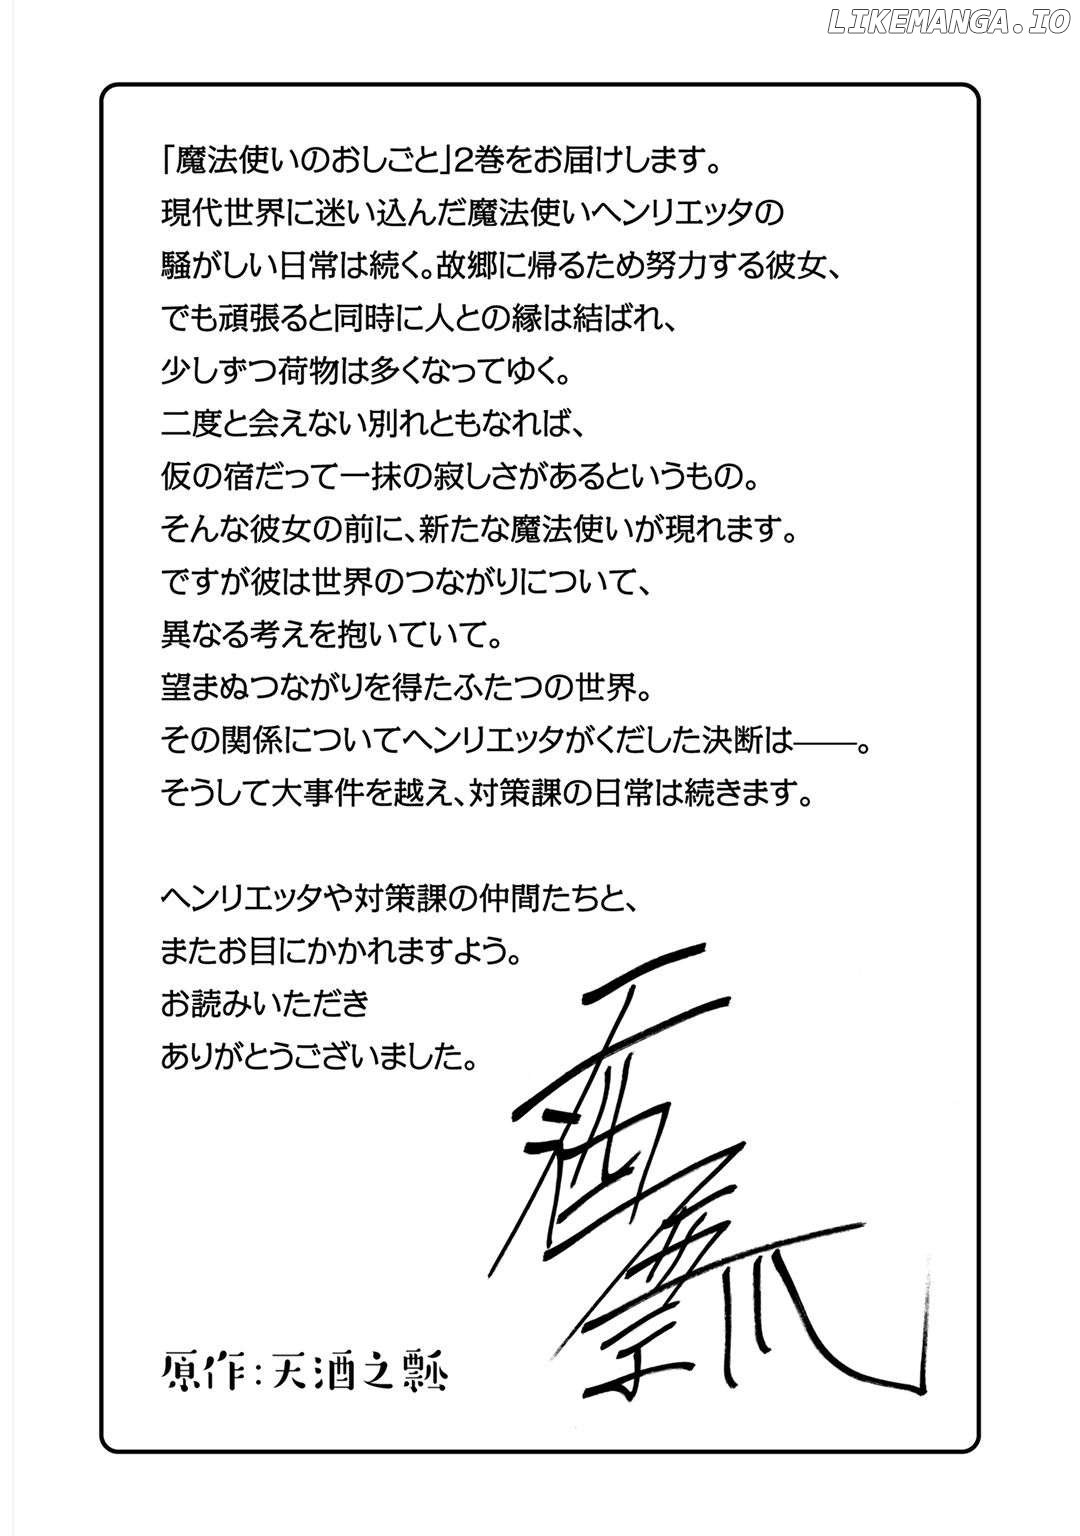 LIKEMANGA.IO
「魔法使いのおしごと」2巻をお届けします。
現代世界に迷い込んだ魔法使いヘンリエッタの
騒がしい日常は続く。故郷に帰るため努力する彼女、
でも頑張ると同時に人との縁は結ばれ、
少しずつ荷物は多くなってゆく。
二度と会えない別れともなれば、
仮の宿だって一抹の寂しさがあるというもの。
そんな彼女の前に、新たな魔法使いが現れます。
ですが彼は世界のつながりについて、
異なる考えを抱いていて。
望まぬつながりを得たふたつの世界。
その関係についてヘンリエッタがくだした決断は――。
そうして大事件を越え、対策課の日常は続きます。
ヘンリエッタや対策課の仲間たちと、
またお目にかかれますよう。
お読みいただき
ありがとうございました。
原作:天酒之瓢